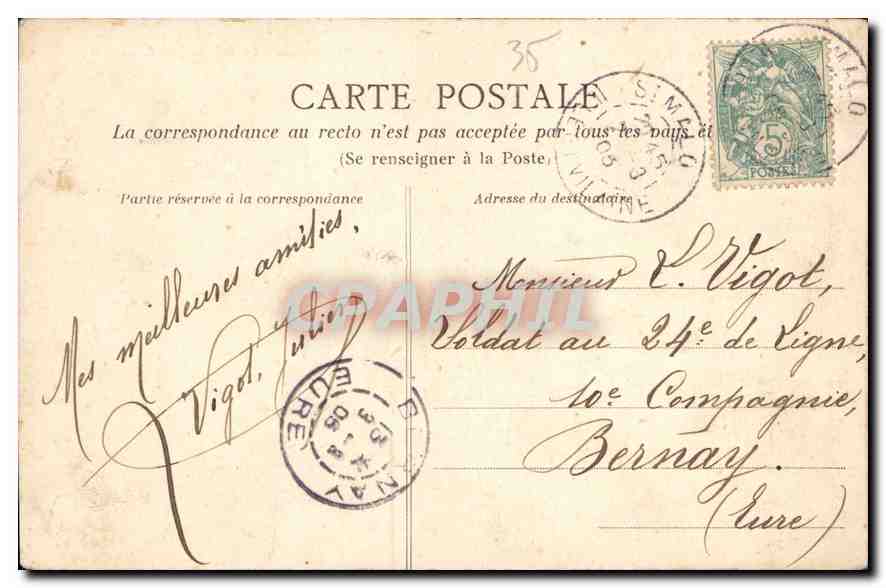 35
CARTE POSTALE
La correspondance au recto n'est pas acceptée par tous les pays ét
(Se renseigner à la Poste)
Partie réservée à la correspondance
Adresse du destinataire
Mes meilleures amitiés,
Vigot, Julien
Monsieur L. Vigot,
Soldat au 24e de Ligne,
10e Compagnie,
Bernay.
(Eure)
5c
POSTES
ST MALO
VILAINE
BERNAY
EURE
CPAPHIL